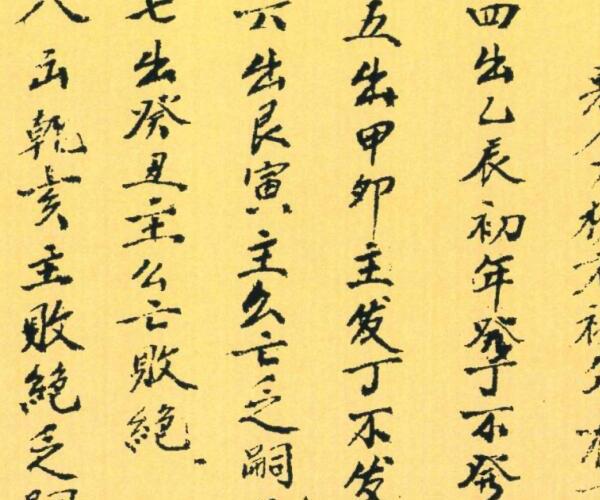 四出乙辰初年發丁不發
五出甲卯主发丁不发
六出艮寅主么亡乏嗣
七出癸丑主么亡敗絕
八出乾亥主敗絕乏嗣